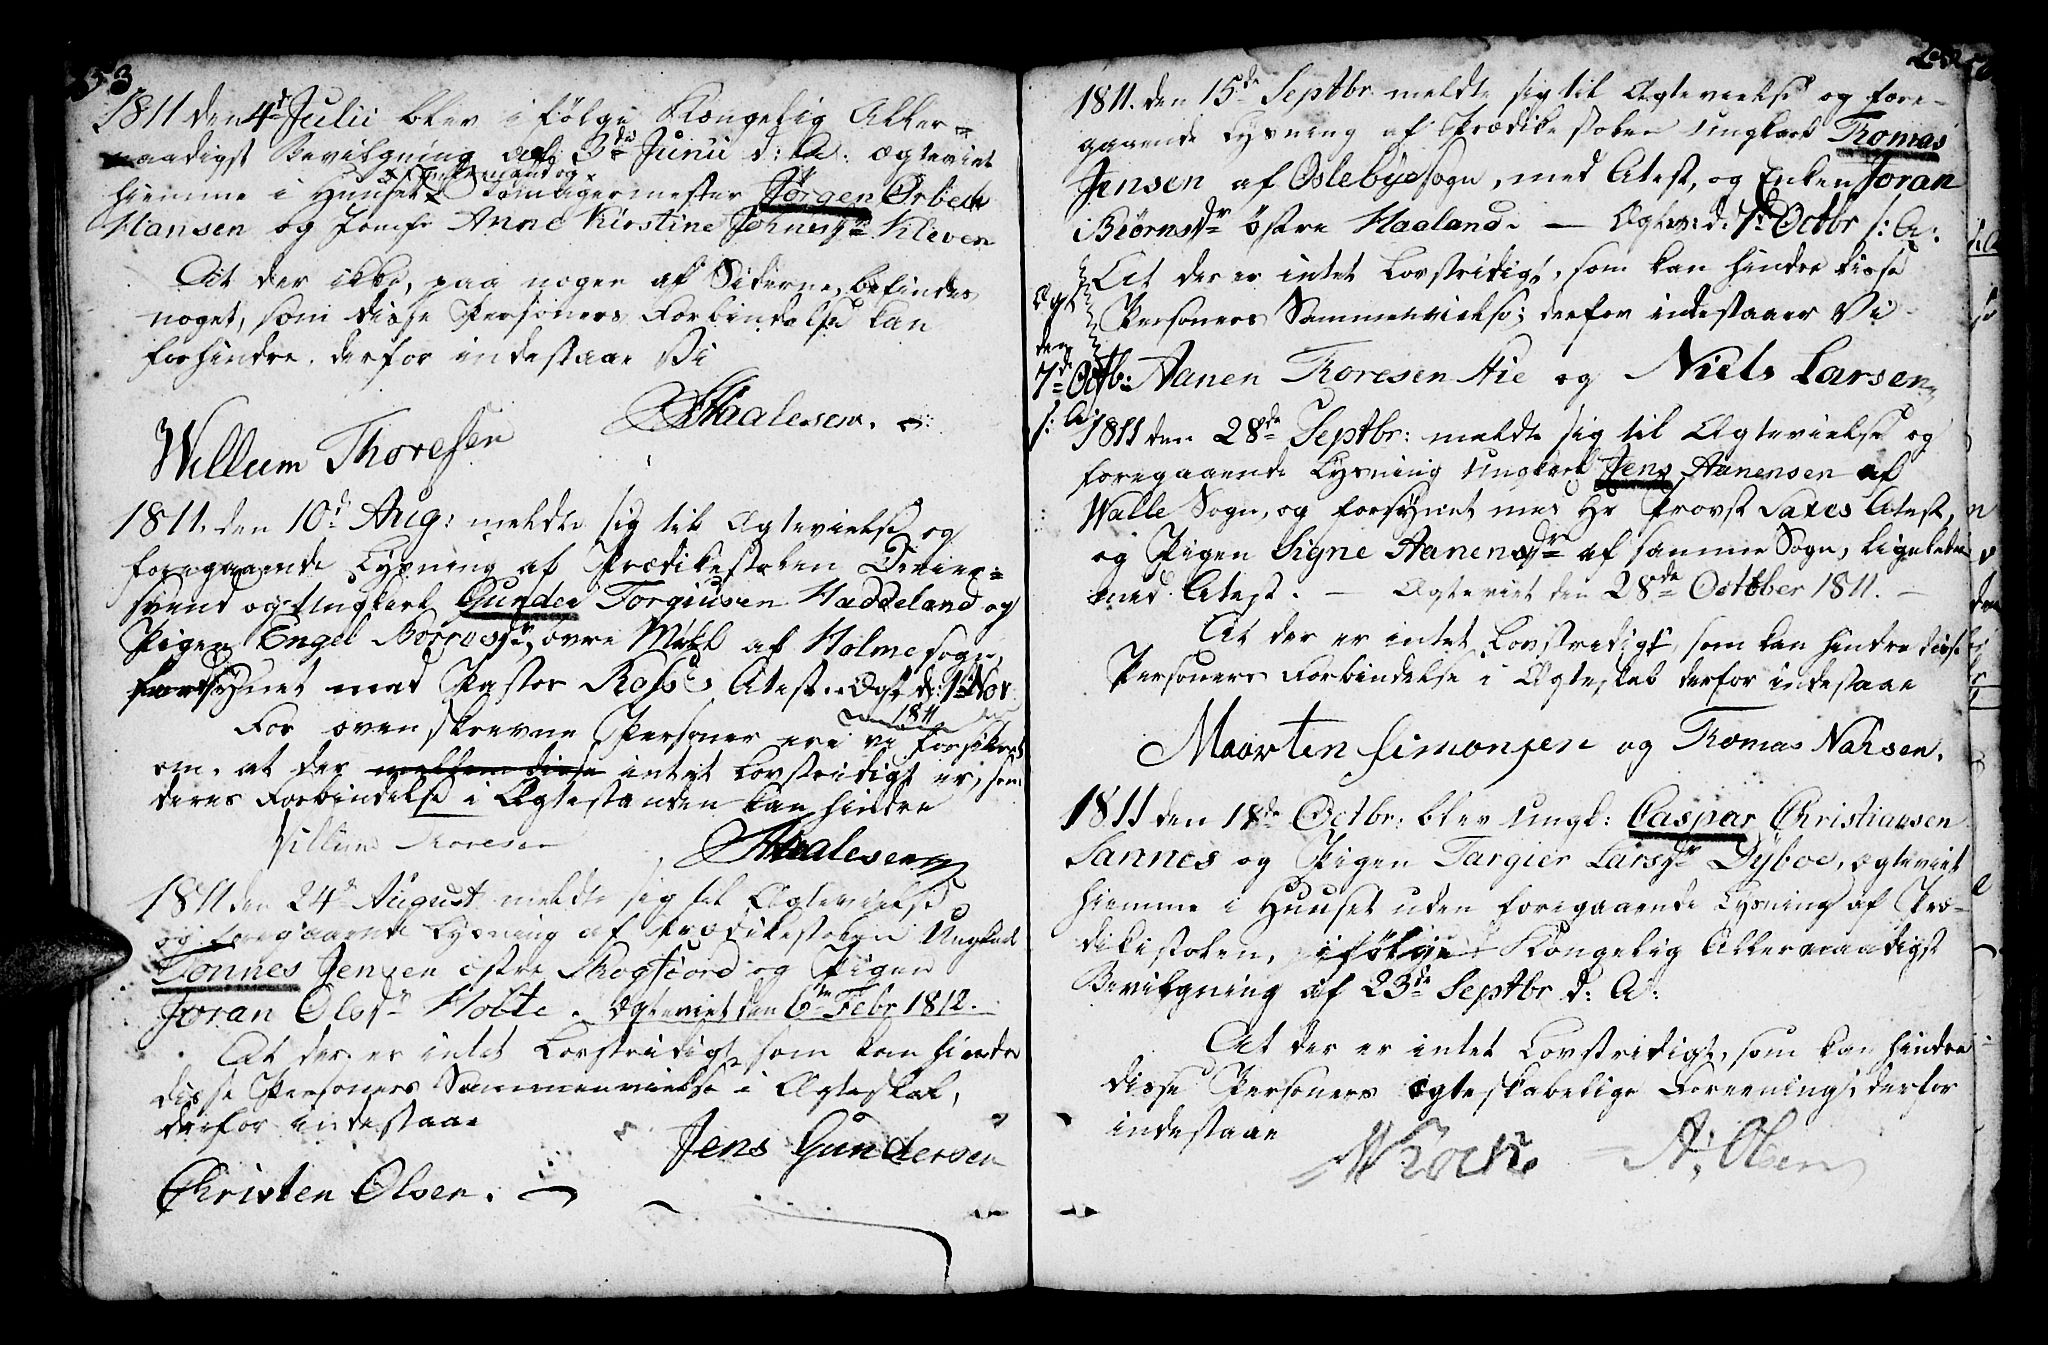 353
1811 den 4de Julii blev ifølge Kongelig Aller=
naadigst Bevilgning af 3die Junii d: A: ægteviet
hiemme i Huuset Enkemand og
Tømagermester Jørgen Orbech
Hansen og Jomfr Anne Kirstine Johnsdr Kleven
At der ikke, paa nogen af Siderne, befindes
noget, som disse Personers Forbindelse kan
forhindre, derfor indestaae Vi
Willum Thoresen Aalesen.
1811. den 10de Aug: meldte sig til Ægtevielse og
foregaaende Lysning af Prædikestolen Dreier=
svend og Ungkarl Gunder Torgiusen Haddeland og
Pigen Engel Borresdr, øvre af Holme sogn,
forsynet med Pastor Atest. Ægt d: 1te Nov
1811
For ovenskrevne Personer ere vi forsikrede
om, at der mellem disse intet Lovstridigt er, som
deres Forbindelse i Ægtestanden kan hindre
Villum Thoresen Aalesen
1811 den 24de August meldte sig til Ægtevielse
og foregaaende Lysning af Prædikestolen Ungkarl
Tønnes Jensen østre Skogfiord og Pigen
Joran Olsdr Holte. Ægteviet den 6te Febr 1812.
At der er intet Lovstridigt som kan hindre
disse Personers Sammenvielse i Ægteskab,
derfor indestaae
Jens Gundersen
Christen Olsen.
1811. den 15de Septbr meldte sig til Ægtevielse og fore-
gaaende Lysning af Prædikestolen Ungkarl Thomas
Jensen af Oslebye Sogn, med Atest, og Enken Joran
Biørnsdr østre Haaland. — Ægtev: d. 7de Octbr s: A:
At der er intet Lovstridigt, som kan hindre disse
Personers Sammenvielse; derfor indestaaer Vi
Ægt
den
7de Octb:
s: A:
Aanen Thoresen Aie og Niels Larsen
1811 den 28de Septbr: meldte sig til Ægtevielse og
foregaaende Lysning Ungkarl Jens Aanensen af
Walle Sogn, og forsynet med Hr Provst Saxes Atest,
og Pigen Signe Aanensdr af samme Sogn, ligeledes
med Atest. — Ægteviet den 28de October 1811. —
At der er intet Lovstridigt, som kan hindre disse
Personers Forbindelse i Ægteskab derfor indestaae
Maarten Simonsen og Thomas Nahsen.
1811 den 18de Octbr: blev Ungk: Caspar Christiansen
Sannes og Pigen Targier Larsdr Dyboe, ægteviet
hiemme i Huuset uden foregaaende Lysning af Præ-
dikestolen, ifølge Kongelig Allernaadigst
Bevilgning af 23de Septbr d: A:
At der er intet Lovstridigt, som kan hindre
disse Personers ægteskabelige Foreening, derfor
indestaae
A: Olsen